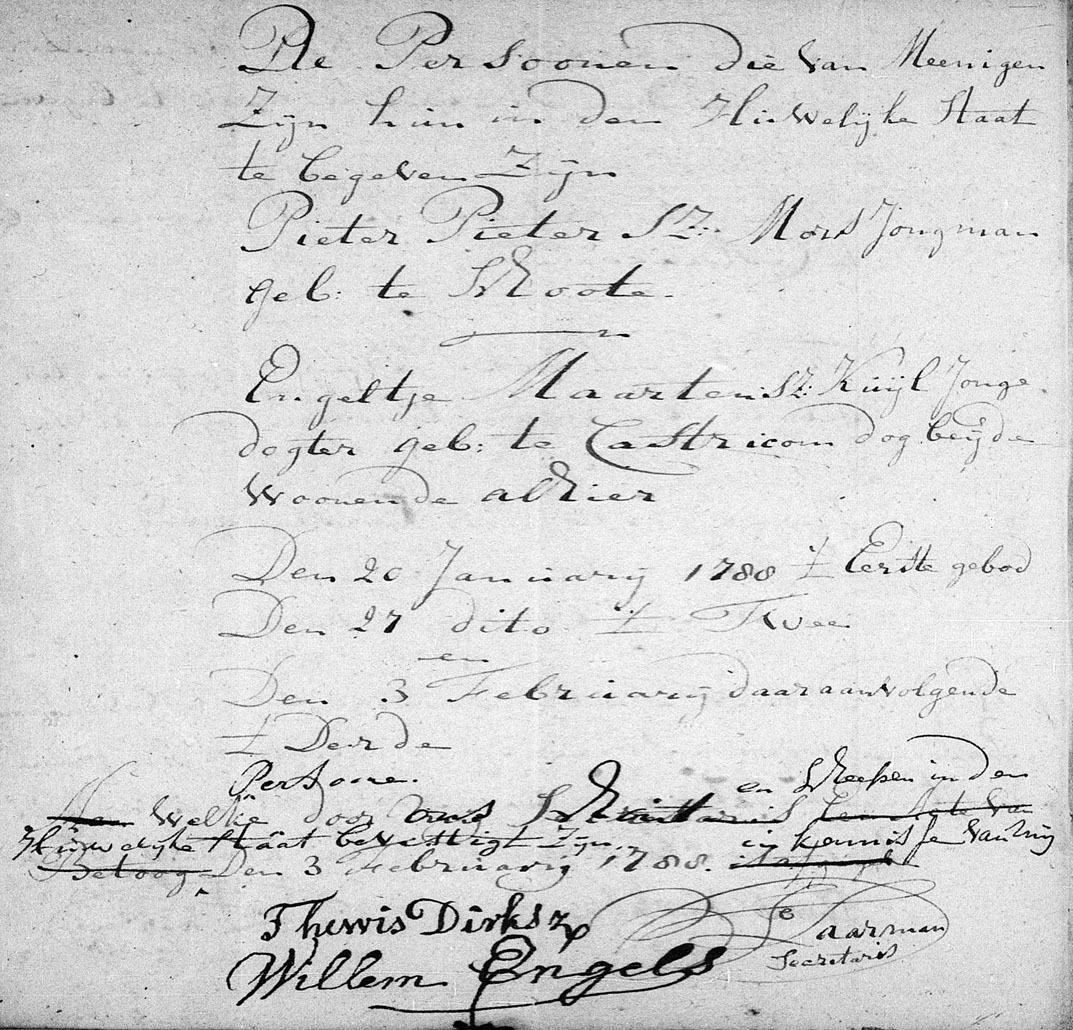 De Persoonen die van Meenigen
Zijn hun in den Huwelijke Staat
te begeven Zijn
Pieter Pieter Sz: Mors Jongman
geb: te Schoote.
Engeltje Maartensz: Kuijl Jonge
dogter geb: te Castricom dog beijde
Woonende alhier
Den 20 Januarij 1788 't Eerste gebod
Den 27 dito 't Twee
en
Den 3 Februarij daaraanvolgende
't Derde
Persoone. en Scheepen in den
Welke door ons
Huwelijke Staat bevestigt Zijn. in kennisse van mij
Betoog Den 3 Februarij 1788.
Thewis Dirksz
Willem Engels
Paarman
Secretaris